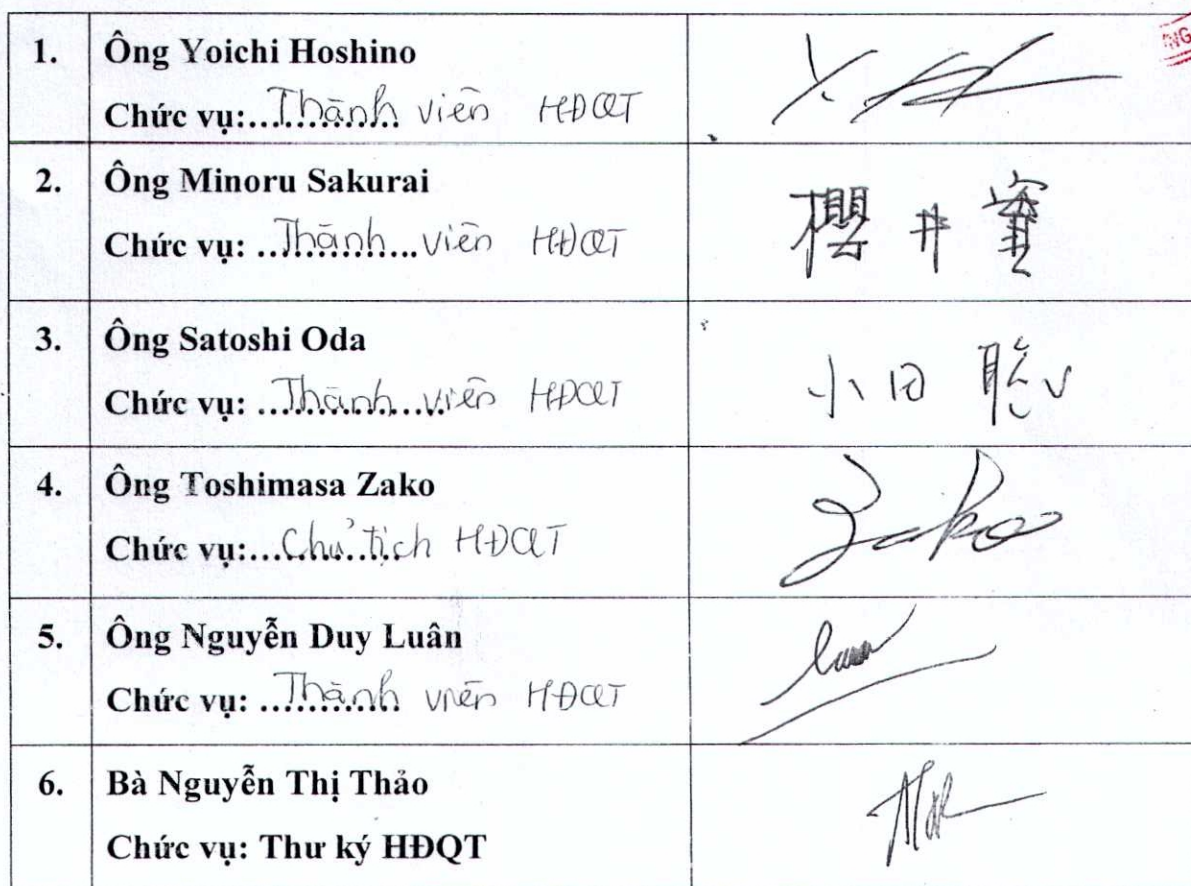 1. Ông Yoichi Hoshino
Chức vụ:.............. Thành viên HĐQT
2. Ông Minoru Sakurai
Chức vụ: .............. Thành viên HĐQT
櫻井實
3. Ông Satoshi Oda
Chức vụ: .............. Thành viên HĐQT
小田 聡
4. Ông Toshimasa Zako
Chức vụ:.............. Chủ tịch HĐQT
Zako
5. Ông Nguyễn Duy Luân
Chức vụ: .............. Thành viên HĐQT
luan
6. Bà Nguyễn Thị Thảo
Chức vụ: Thư ký HĐQT